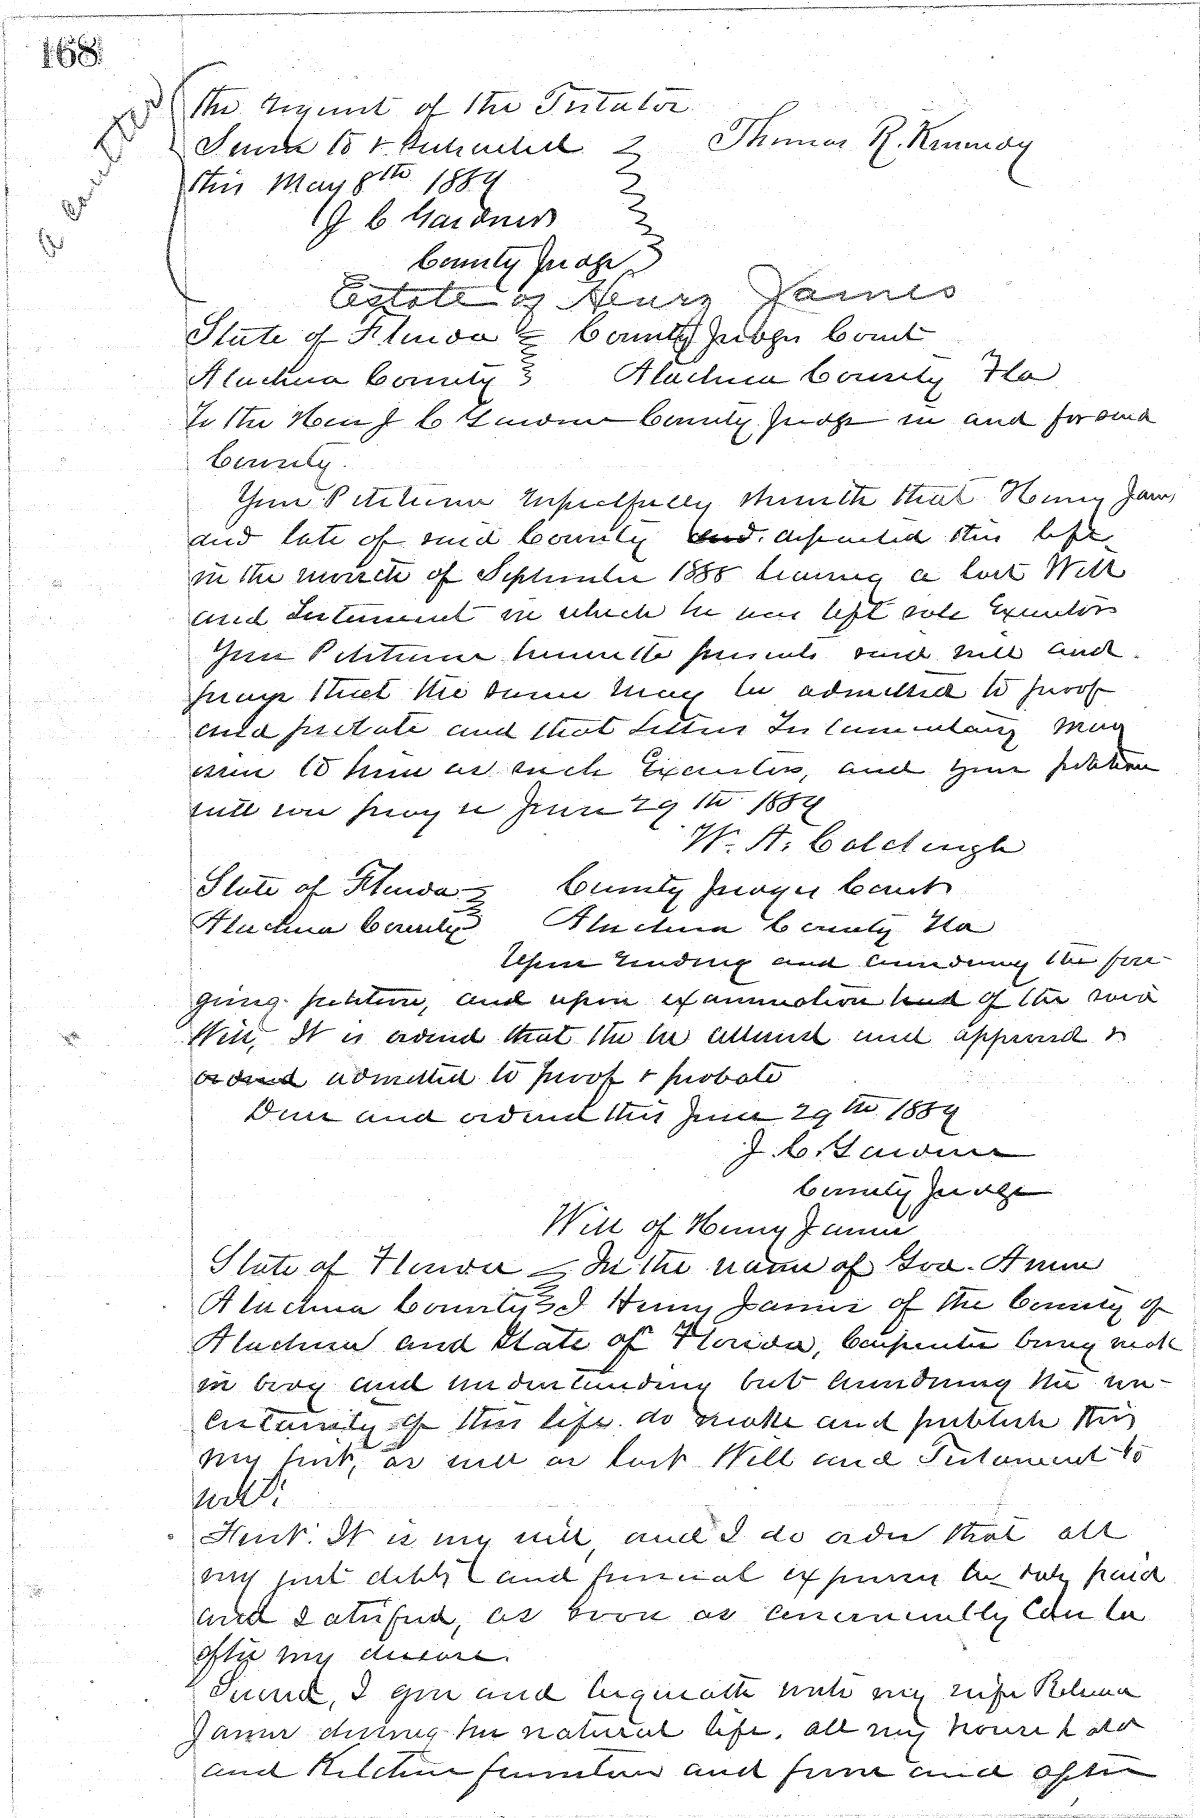 168
the request of the Testator
Sworn to & subscribed Thomas R. Kennedy
this May 8th 1889
J C Gardner
County Judge
Estate of Henry James
State of Florida County Judges Court
Alachua County Alachua County Fla
To the Hon J C Gardner County Judge in and for said
County.
Your Petitioner respectfully showeth that Henry James
and late of said County and. departed this life
in the month of September 1888 leaving a last Will
and Testament in which he was left sole Executors
Your Petitioner herewith presents said will and
prays that the same may be admitted to proof
and probate and that Letters Testamentary may
issue to him as such Executors, and your petitioner
will ever pray &c June 29th 1889
W. A. Colclough
State of Florida County Judges Court
Alachua County Alachua County Fla
Upon reading and considering the fore-
going petition, and upon examination had of the said
Will, It is ordered that the be allowed and approved &
ordered admitted to proof & probate
Done and ordered this June 29th 1889
J. C. Gardner
County Judge
Will of Henry James
State of Florida In the name of God. Amen
Alachua County I Henry James of the County of
Alachua and State of Florida, Carpenter being weak
in body and understanding but considering the un-
certainty of this life do make and publish this
my first, as well as last Will and Testament to
wit:
First: It is my will, and I do order that all
my just debts and funeral expenses be duly paid
and satisfied, as soon as conveniently can be
after my decease.
Second, I give and bequeath unto my wife Rebecca
James during her natural life, all my house hold
and Kitchen furniture and from and after